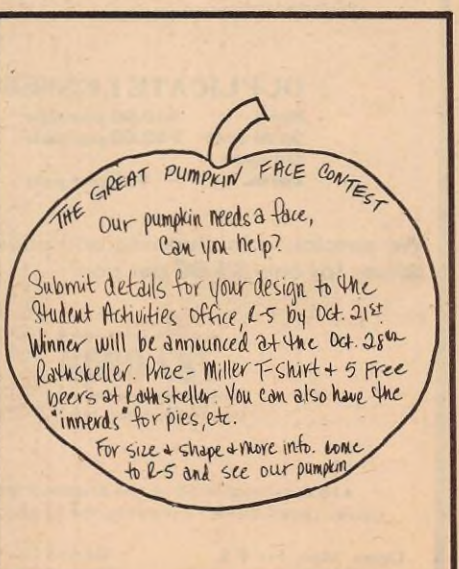 THE GREAT PUMPKIN FACE CONTEST
Our pumpkin needs a face,
Can you help?
Submit details for your design to the
Student Activities Office, R-5 by Oct. 21st
Winner will be announced at the Oct. 28th
Rathskeller. Prize - Miller T-shirt + 5 Free
beers at Rathskeller. You can also have the
"innerds" for pies, etc.
For size + shape + more info. come
to R-5 and see our pumpkin